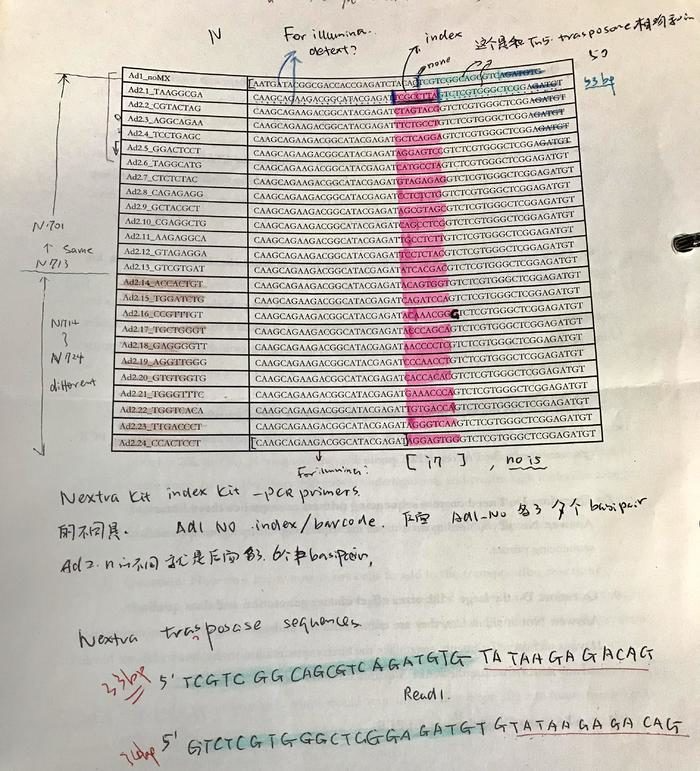 N
For illumina.
detext?
index
none
这个是和 Tn5. trasposase 相吻合
33bp
Ad1_noMX AATGATACGGCGACCACCGAGATCTACACTCGTCGGCAGCGTCAGATGTG
Ad2.1_TAAGGCGA CAAGCAGAAGACGGCATACGAGATTCGCCTTAGTCTCGTGGGCTCGGAGATGT
Ad2.2_CGTACTAG CAAGCAGAAGACGGCATACGAGATCTAGTACGGTCTCGTGGGCTCGGAGATGT
Ad2.3_AGGCAGAA CAAGCAGAAGACGGCATACGAGATTTCTGCCTGTCTCGTGGGCTCGGAGATGT
Ad2.4_TCCTGAGC CAAGCAGAAGACGGCATACGAGATGCTCAGGAGTCTCGTGGGCTCGGAGATGT
Ad2.5_GGACTCCT CAAGCAGAAGACGGCATACGAGATAGGAGTCCGTCTCGTGGGCTCGGAGATGT
Ad2.6_TAGGCATG CAAGCAGAAGACGGCATACGAGATCATGCCTAGTCTCGTGGGCTCGGAGATGT
Ad2.7_CTCTCTAC CAAGCAGAAGACGGCATACGAGATGTAGAGAGGTCTCGTGGGCTCGGAGATGT
Ad2.8_CAGAGAGG CAAGCAGAAGACGGCATACGAGATCCTCTCTGGTCTCGTGGGCTCGGAGATGT
Ad2.9_GCTACGCT CAAGCAGAAGACGGCATACGAGATAGCGTAGCGTCTCGTGGGCTCGGAGATGT
Ad2.10_CGAGGCTG CAAGCAGAAGACGGCATACGAGATCAGCCTCGGTCTCGTGGGCTCGGAGATGT
Ad2.11_AAGAGGCA CAAGCAGAAGACGGCATACGAGATTGCCTCTTGTCTCGTGGGCTCGGAGATGT
Ad2.12_GTAGAGGA CAAGCAGAAGACGGCATACGAGATTCCTCTACGTCTCGTGGGCTCGGAGATGT
Ad2.13_GTCGTGAT CAAGCAGAAGACGGCATACGAGATATCACGACGTCTCGTGGGCTCGGAGATGT
Ad2.14_ACCACTGT CAAGCAGAAGACGGCATACGAGATACAGTGGTGTCTCGTGGGCTCGGAGATGT
Ad2.15_TGGATCTG CAAGCAGAAGACGGCATACGAGATCAGATCCAGTCTCGTGGGCTCGGAGATGT
Ad2.16_CCGTTTGT CAAGCAGAAGACGGCATACGAGATACAAACGGGTCTCGTGGGCTCGGAGATGT
Ad2.17_TGCTGGGT CAAGCAGAAGACGGCATACGAGATACCCAGCAGTCTCGTGGGCTCGGAGATGT
Ad2.18_GAGGGGTT CAAGCAGAAGACGGCATACGAGATAACCCCTCGTCTCGTGGGCTCGGAGATGT
Ad2.19_AGGTTGGG CAAGCAGAAGACGGCATACGAGATCCCAACCTGTCTCGTGGGCTCGGAGATGT
Ad2.20_GTGTGGTG CAAGCAGAAGACGGCATACGAGATCACCACACGTCTCGTGGGCTCGGAGATGT
Ad2.21_TGGGTTTC CAAGCAGAAGACGGCATACGAGATGAAACCCAGTCTCGTGGGCTCGGAGATGT
Ad2.22_TGGTCACA CAAGCAGAAGACGGCATACGAGATTGTGACCAGTCTCGTGGGCTCGGAGATGT
Ad2.23_TTGACCCT CAAGCAGAAGACGGCATACGAGATAGGGTCAAGTCTCGTGGGCTCGGAGATGT
Ad2.24_CCACTCCT CAAGCAGAAGACGGCATACGAGATAGGAGTGGGTCTCGTGGGCTCGGAGATGT
N701
↑ same
N713
N714
N724
different
For illumina:
[ i7 ] , no i5
Nextra Kit index Kit - PCR primers.
的不同是. Ad1 NO index/barcode. 后面 Ad1_No 多了 个 basipair
Ad2.n的不同就是后面多了 6个 basipair,
Nextra trasposase sequences
33bp 5' TCGTC GG CAGCGTC AGATGTG TATAAGAGACAG
Read1.
34bp 5' GTCTCGTGGGCTCGGAGATGTGTATAAGAGACAG